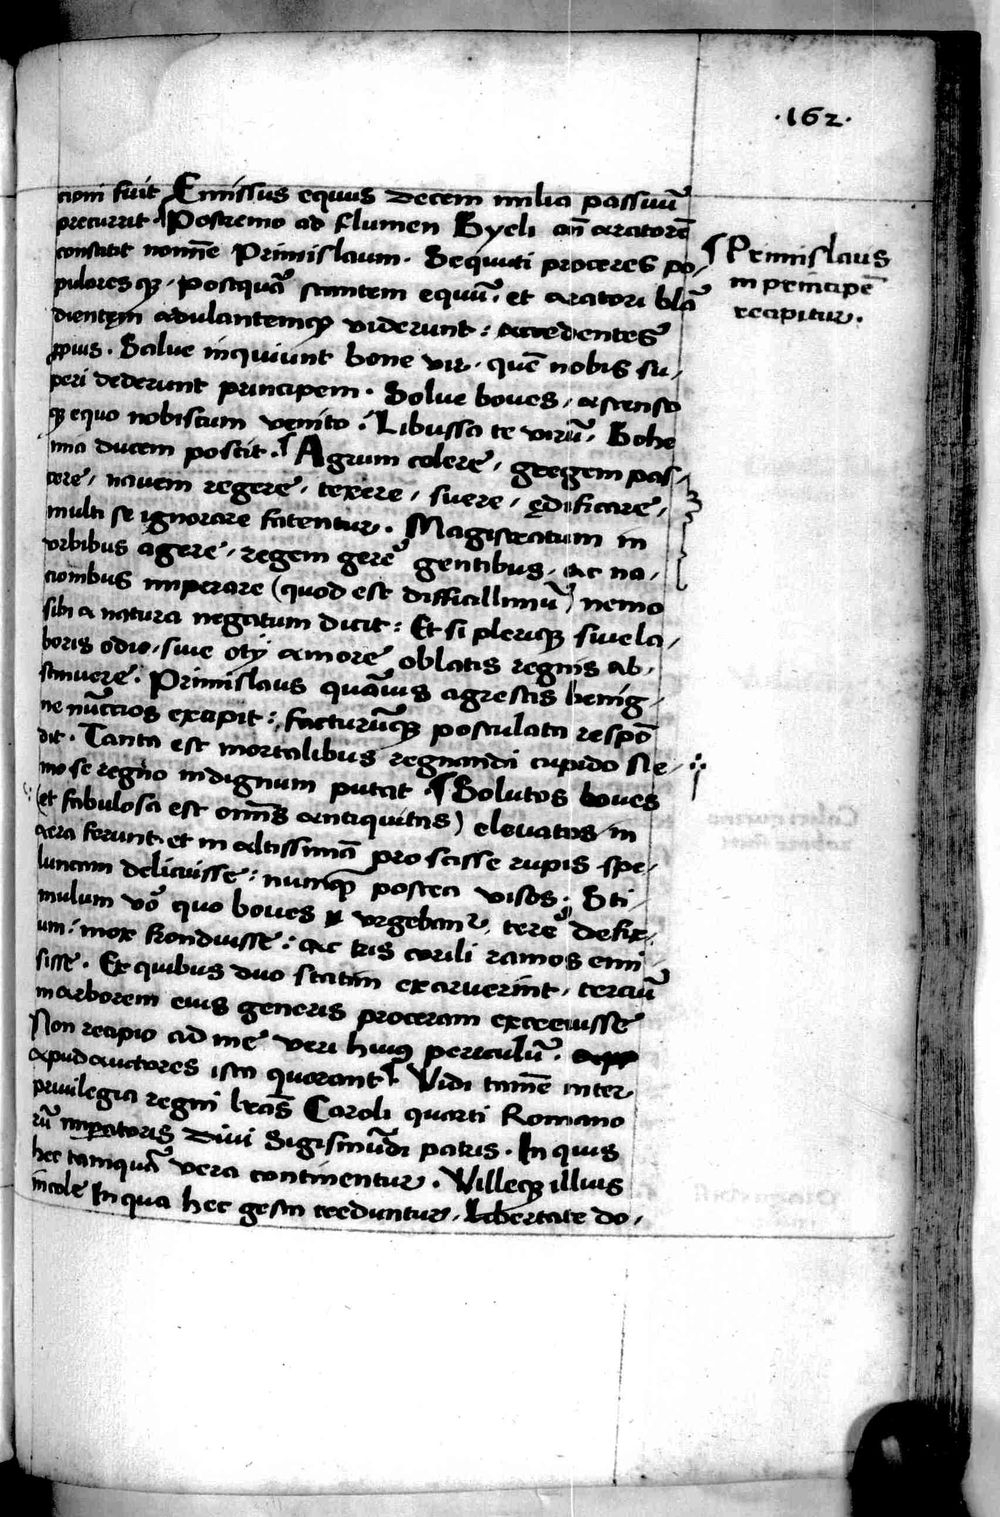 ·162·
cioni fuit Emissus equus decem milia passuũ
precurrit ¶ Postremo ad flumen Byeli añ aratorẽ
constitit nomĩe Primislaum. Sequuti proceres po/
pularesqȝ. postquã stantem equũ. et aratori blã
dientem adulantemqȝ viderunt: accedentes
ꝓpius. Salue inquiunt bone vir. quẽ nobis su/
peri dederunt principem. Solue boues. ascenso
qȝ equo nobiscum venito. Libussa te virũ. Bohe
mia ducem poscit. ¶ Agrum colere. gregem pas/
cere. nauem regere. texere. suere. ędificare.
multi se ignorare fatentur. Magistratum in
vrbibus agere. regem gerẽ gentibus. ac na/
cionibus imperare (quod est difficillimũ) nemo
sibi a natura negatum dicit: Et si pleriqȝ siue la/
boris odio. siue otij amore oblatis regnis ab/
stinuere. Primislaus quãuis agrestis benig/
ne nũccios excipit: facturũqȝ postulata respõ
dit. Tanta est mortalibus regnandi cupido Ne/
mo se regno indignum putat. ¶ Solutos boues
(et fabulosa est om̃is antiquitas) eleuatos in
aera ferunt. et in altissimã proscisse rupis spe/
luncam delituisse: nunqȝ postea visos. Sti/
mulum võ quo boues vrgebant̃. tere defix/
um: mox fronduisse: ac tris corili ramos emi/
sisse. Ex quibus duo statim exaruerint. terciũ
in arborem eius generis proceram excreuisse
Non recipio ad me veri huiꝰ periculũ.
apud auctores ista quorant ¶ Vidi tamẽ inter
priuilegia regni lr̃as Caroli quarti Romano
rũ imꝑatoris diui Sigismũdi patris. In quis
hec tamquã vera continentur. Villeqȝ illius
incole In qua hec gesta creduntur. Libertate do/
¶ Primislaus
in principẽ
recipitur.